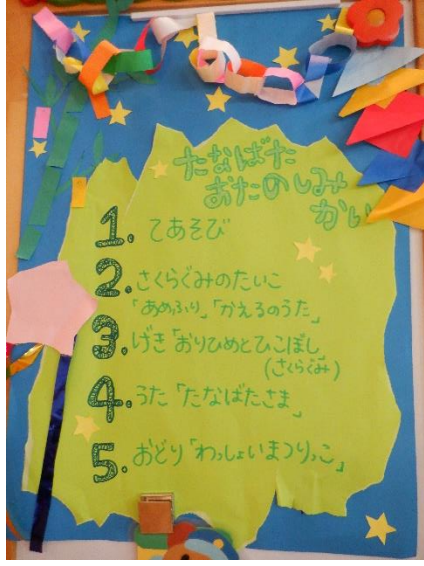 たなばた
おたのしみ
かい
1. てあそび
2. さくらぐみのたいこ
「あめふり」「かえるのうた」
3. げき「おりひめとひこぼし」
(さくらぐみ)
4. うた「たなばたさま」
5. おどり「わっしょいまつりっこ」